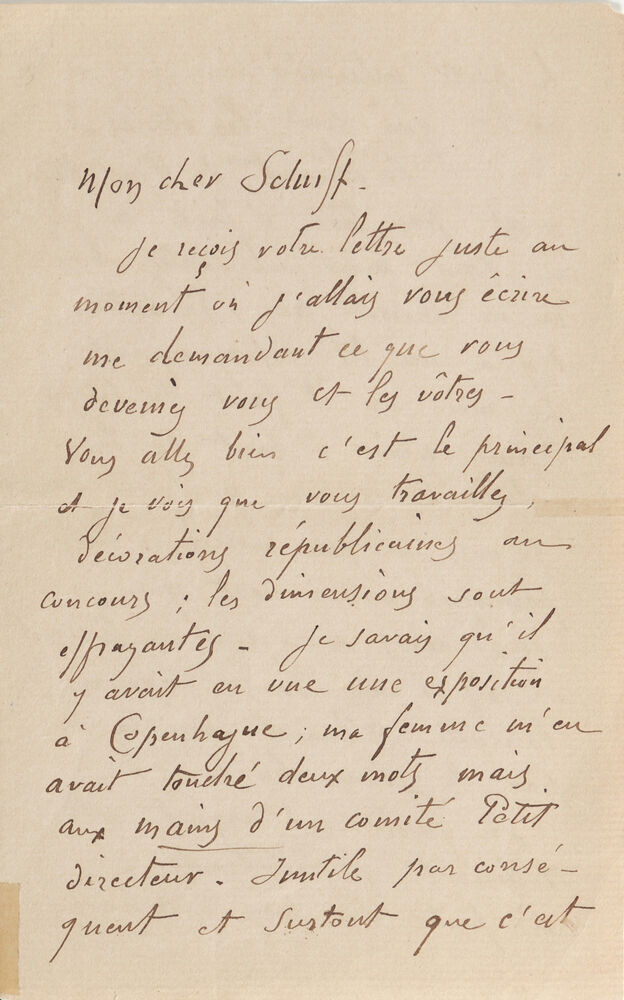 Mon cher Schuff.
Je reçois votre lettre juste au
moment où j'allais vous écrire
me demandant ce que vous
deveniez vous et les vôtres -
Vous allez bien c'est le principal
et je vois que vous travaillez,
décorations républicaines au
concours ; les dimensions sont
effrayantes - Je savais qu'il
y avait en vue une exposition
à Copenhague ; ma femme m'en
avait touché deux mots mais
aux mains d'un comité Petit
directeur. Inutile par consé-
quent et surtout que c'est